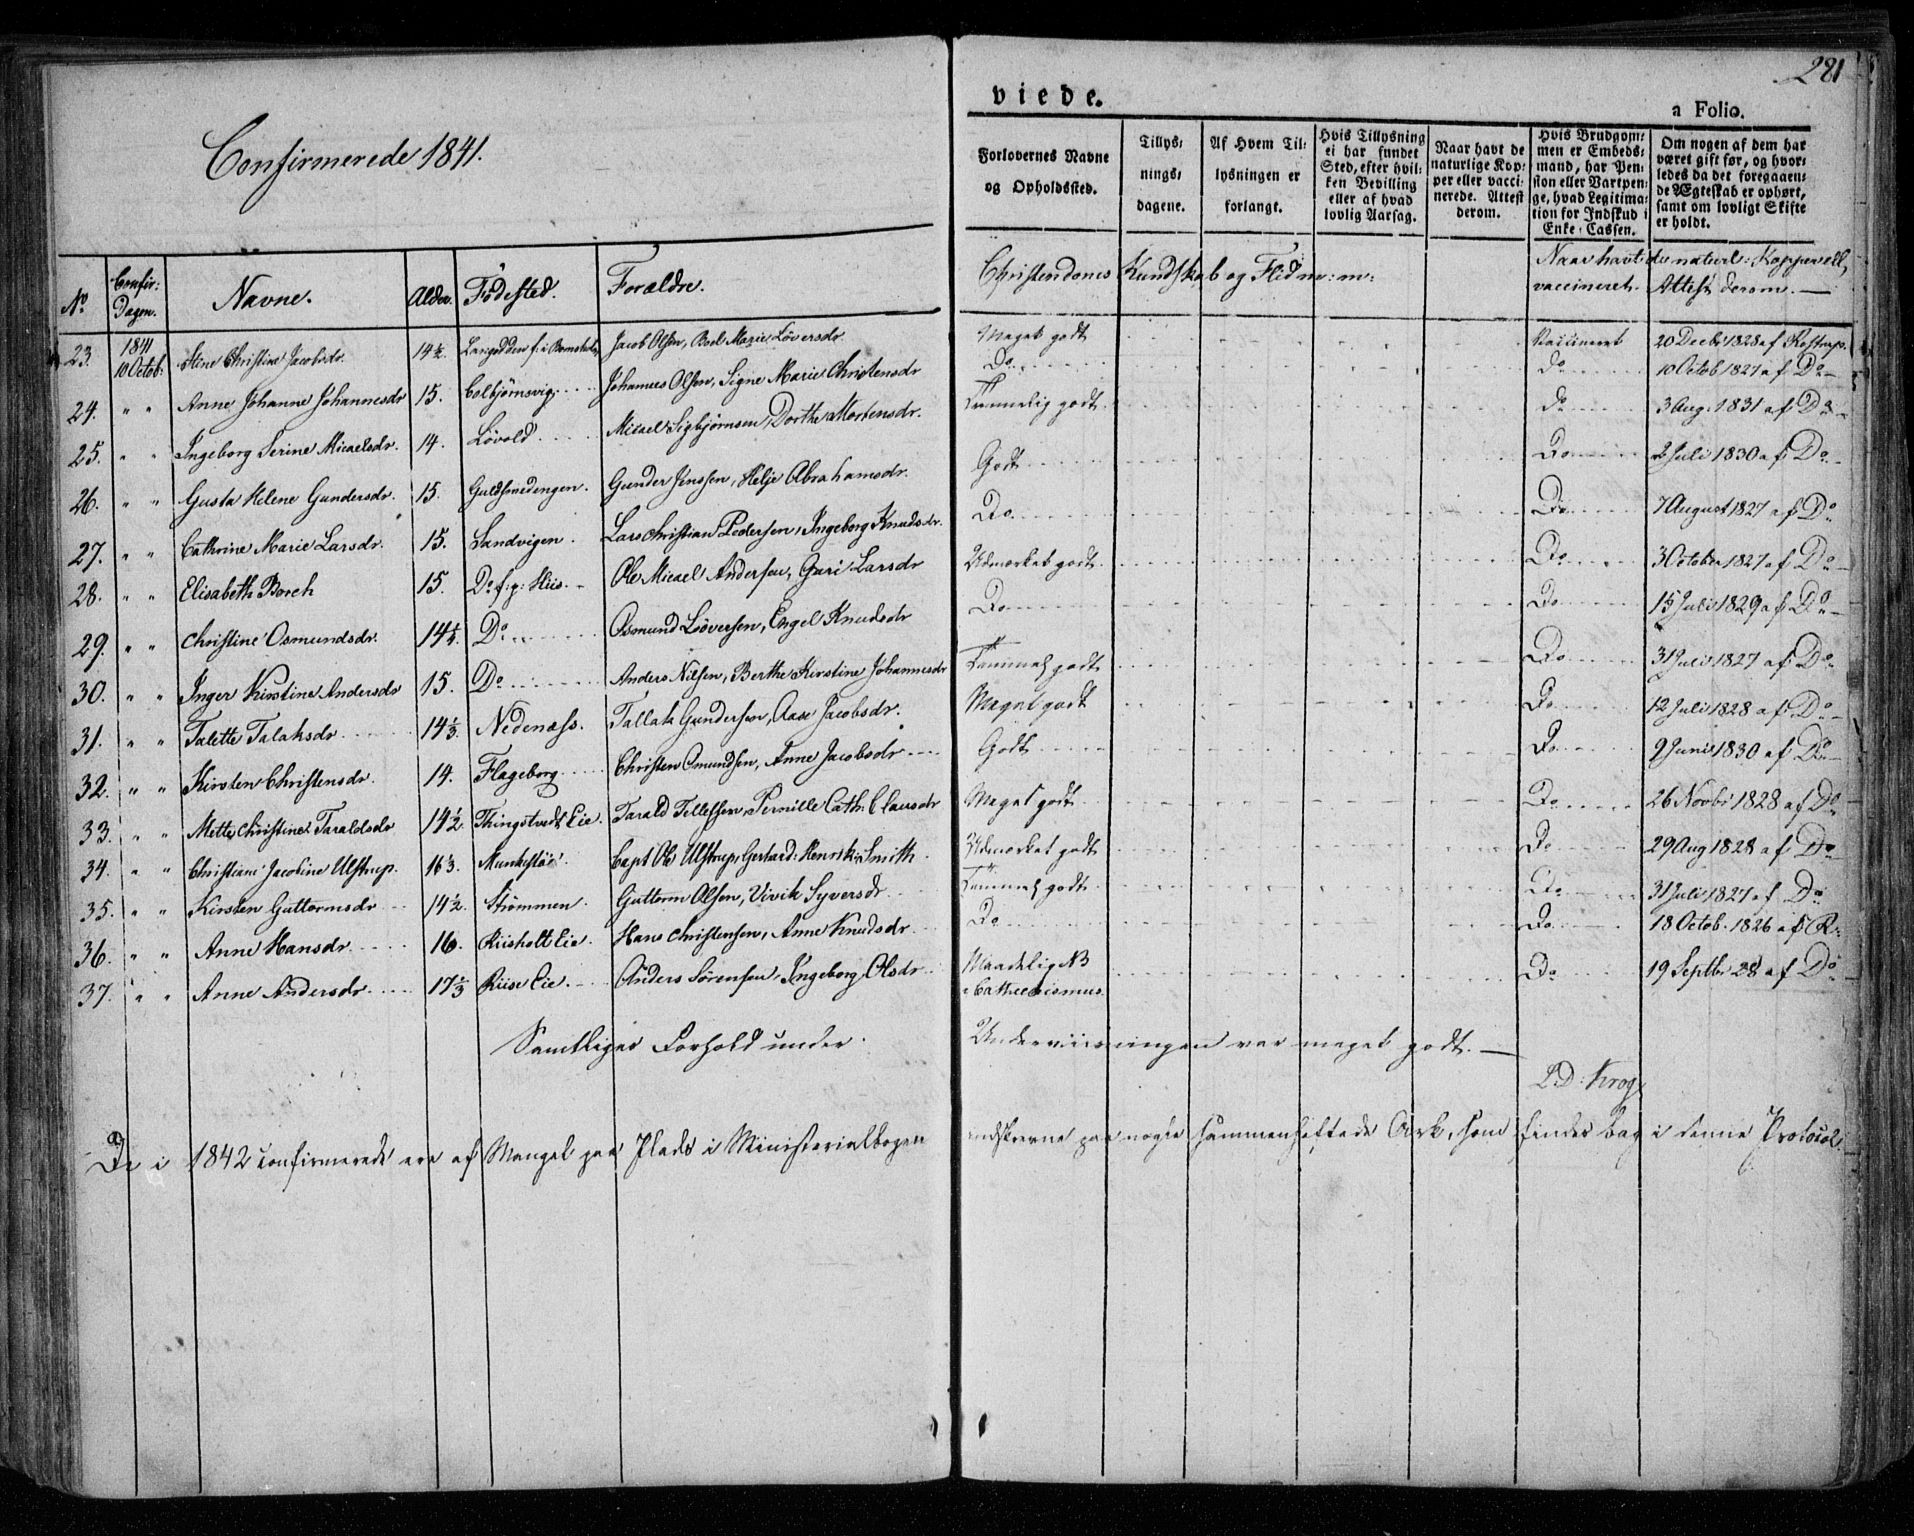 281
viede.
a Folio.
Confirmerede 1841.
Forlovernes Navne og Opholdssted.
Tillysningsdagene.
Af Hvem Tillysningen er forlangt.
Hvis Tillysning ei har fundet Sted, efter hvilken Bevilling eller af hvad lovlig Aarsag.
Naar havt de naturlige Kopper eller vaccinerede. Attest derom.
Hvis Brudgommen er Embedsmand, har Pension eller Vartpenge, hvad Legitimation for Indskud i Enke-Cassen.
Om nogen af dem har været gift før, og hvorledes da det foregaaende Ægteskab er ophørt, samt om lovligt Skifte er holdt.
No Confir: Dagen. Navne. Alder. Fødested. Forældre. Christendoms Kundskab og Flid m: m: Naar havt de naturl: Kopper ell, vaccineret. Attest derom. —
23. 1841 10 Octob. Stine Christine Jacobsdr. 14½ Jacob Olsen, Boel Marie Løversdr Meget godt Vaccineret 20 Decbr 1828 af Kostrup.
24. " " Anne Johanne Johannesdr 15. Colbjørnsvig Johannes Olsen, Signe Marie Christensdr Do. do 10 Octob 1827 af Do
25. " " Ingeborg Serine Micaelsdr. 14. Løvold Micael Sigbjørnsen, Dorthe Mortensdr. Temmelig godt do 3 Aug. 1831 af Do
26. " " Gusta Helene Gundersdr. 15. Guldsmedengen. Gunder Jenssen, Helje Abrahamsdr. Godt Do 2 Juli 1830 af Do
27. " " Cathrine Marie Larsdr. 15. Sandvigen. Lars Christian Pedersen, Ingeborg Knudsdr. Do. Do. 7 August 1827 af Do
28. " " Elisabeth Borch 15. Do f: p: Hiis. Ole Micael Andersen, Guri Larsdr Udmærket godt Do 3 October 1827 af Do
29. " " Christine Osmundsdr. 14¼. Do Osmund Løversen, Engel Knudsdr Do Do 15 Juli 1829 af Do
30. " " Inger Kirstine Andersdr 15. Do Anders Nilsen, Berthe Kirstine Johannesdr Temmel godt Do 31 Juli 1827 af Do
31. " " Talette Talaksdr 14⅓. Nedenæss. Tallak Gundersen, Aase Jacobsdr. Meget godt Do 12 Juli 1828 af Do
32. " " Kirsten Christensdr. 14. Flageborg Christen Osmundsen, Anne Jacobsdr Godt Do 9 Juni 1830 af Do
33. " " Mette Christine Taraldsdr 14½ Thingstvedt Eie. Tarald Tellefsen, Pernille Cath: Clausdr Meget godt Do 26 Novbr 1828 af Do
34. " " Christiane Jacobine Ulstrup. 16⅓. Capt Ole Ulstrup, Gerhard: Henrikke Smith Udmærket godt Do 29 Aug 1828 af Do
35. " " Kirsten Guttormsdr 14½ Strømmen. Guttorm Olsen, Vivik Syversdr Temmel godt Do 31 Juli 1827 af Do
36. " " Anne Hansdr 16. Riisholt Eie. Hans Christensen, Anne Knudsdr Do Do. 18 Octob. 1826 af R.
37. " " Anne Andersdr 17⅓ Riise Eie. Anders Sørensen, Ingeborg Olsdr Maadelig NB Cathecismus. Do 19 Septbr 28 af Do
Samtliges Forhold under Underviisningen var meget godt. —
P.D: Krog
De i 1842 confirmerede ere af Mangel paa Plads i Ministerialbogen indskrevne paa nogle sammenheftede Ark, som findes bag i denne Protocol.